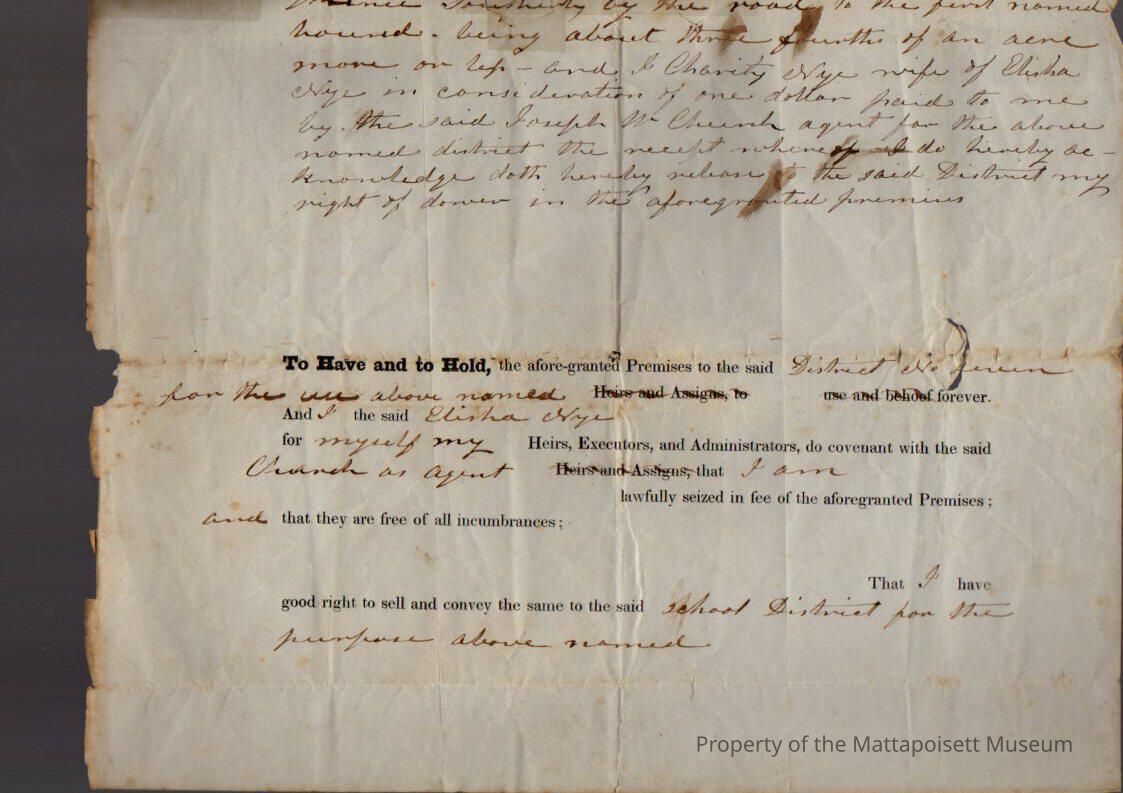 thence Southerly by the road to the first named
bound - being about three fourths of an acre
more or less - and I Charity Nye wife of Elisha
Nye in consideration of one dollar paid to me
by the said Joseph W Church agent for the above
named district the receipt whereof I do hereby ac-
knowledge doth hereby release to the said District my
right of dower in the aforegranted premises
To Have and to Hold, the afore-granted Premises to the said District No Seven
for the use above named Heirs and Assigns, to use and behoof forever.
And I the said Elisha Nye
for myself my Heirs, Executors, and Administrators, do covenant with the said
Church as agent Heirs and Assigns, that I am
lawfully seized in fee of the aforegranted Premises;
and that they are free of all incumbrances;
That I have
good right to sell and convey the same to the said school District for the
purpose above named
Property of the Mattapoisett Museum